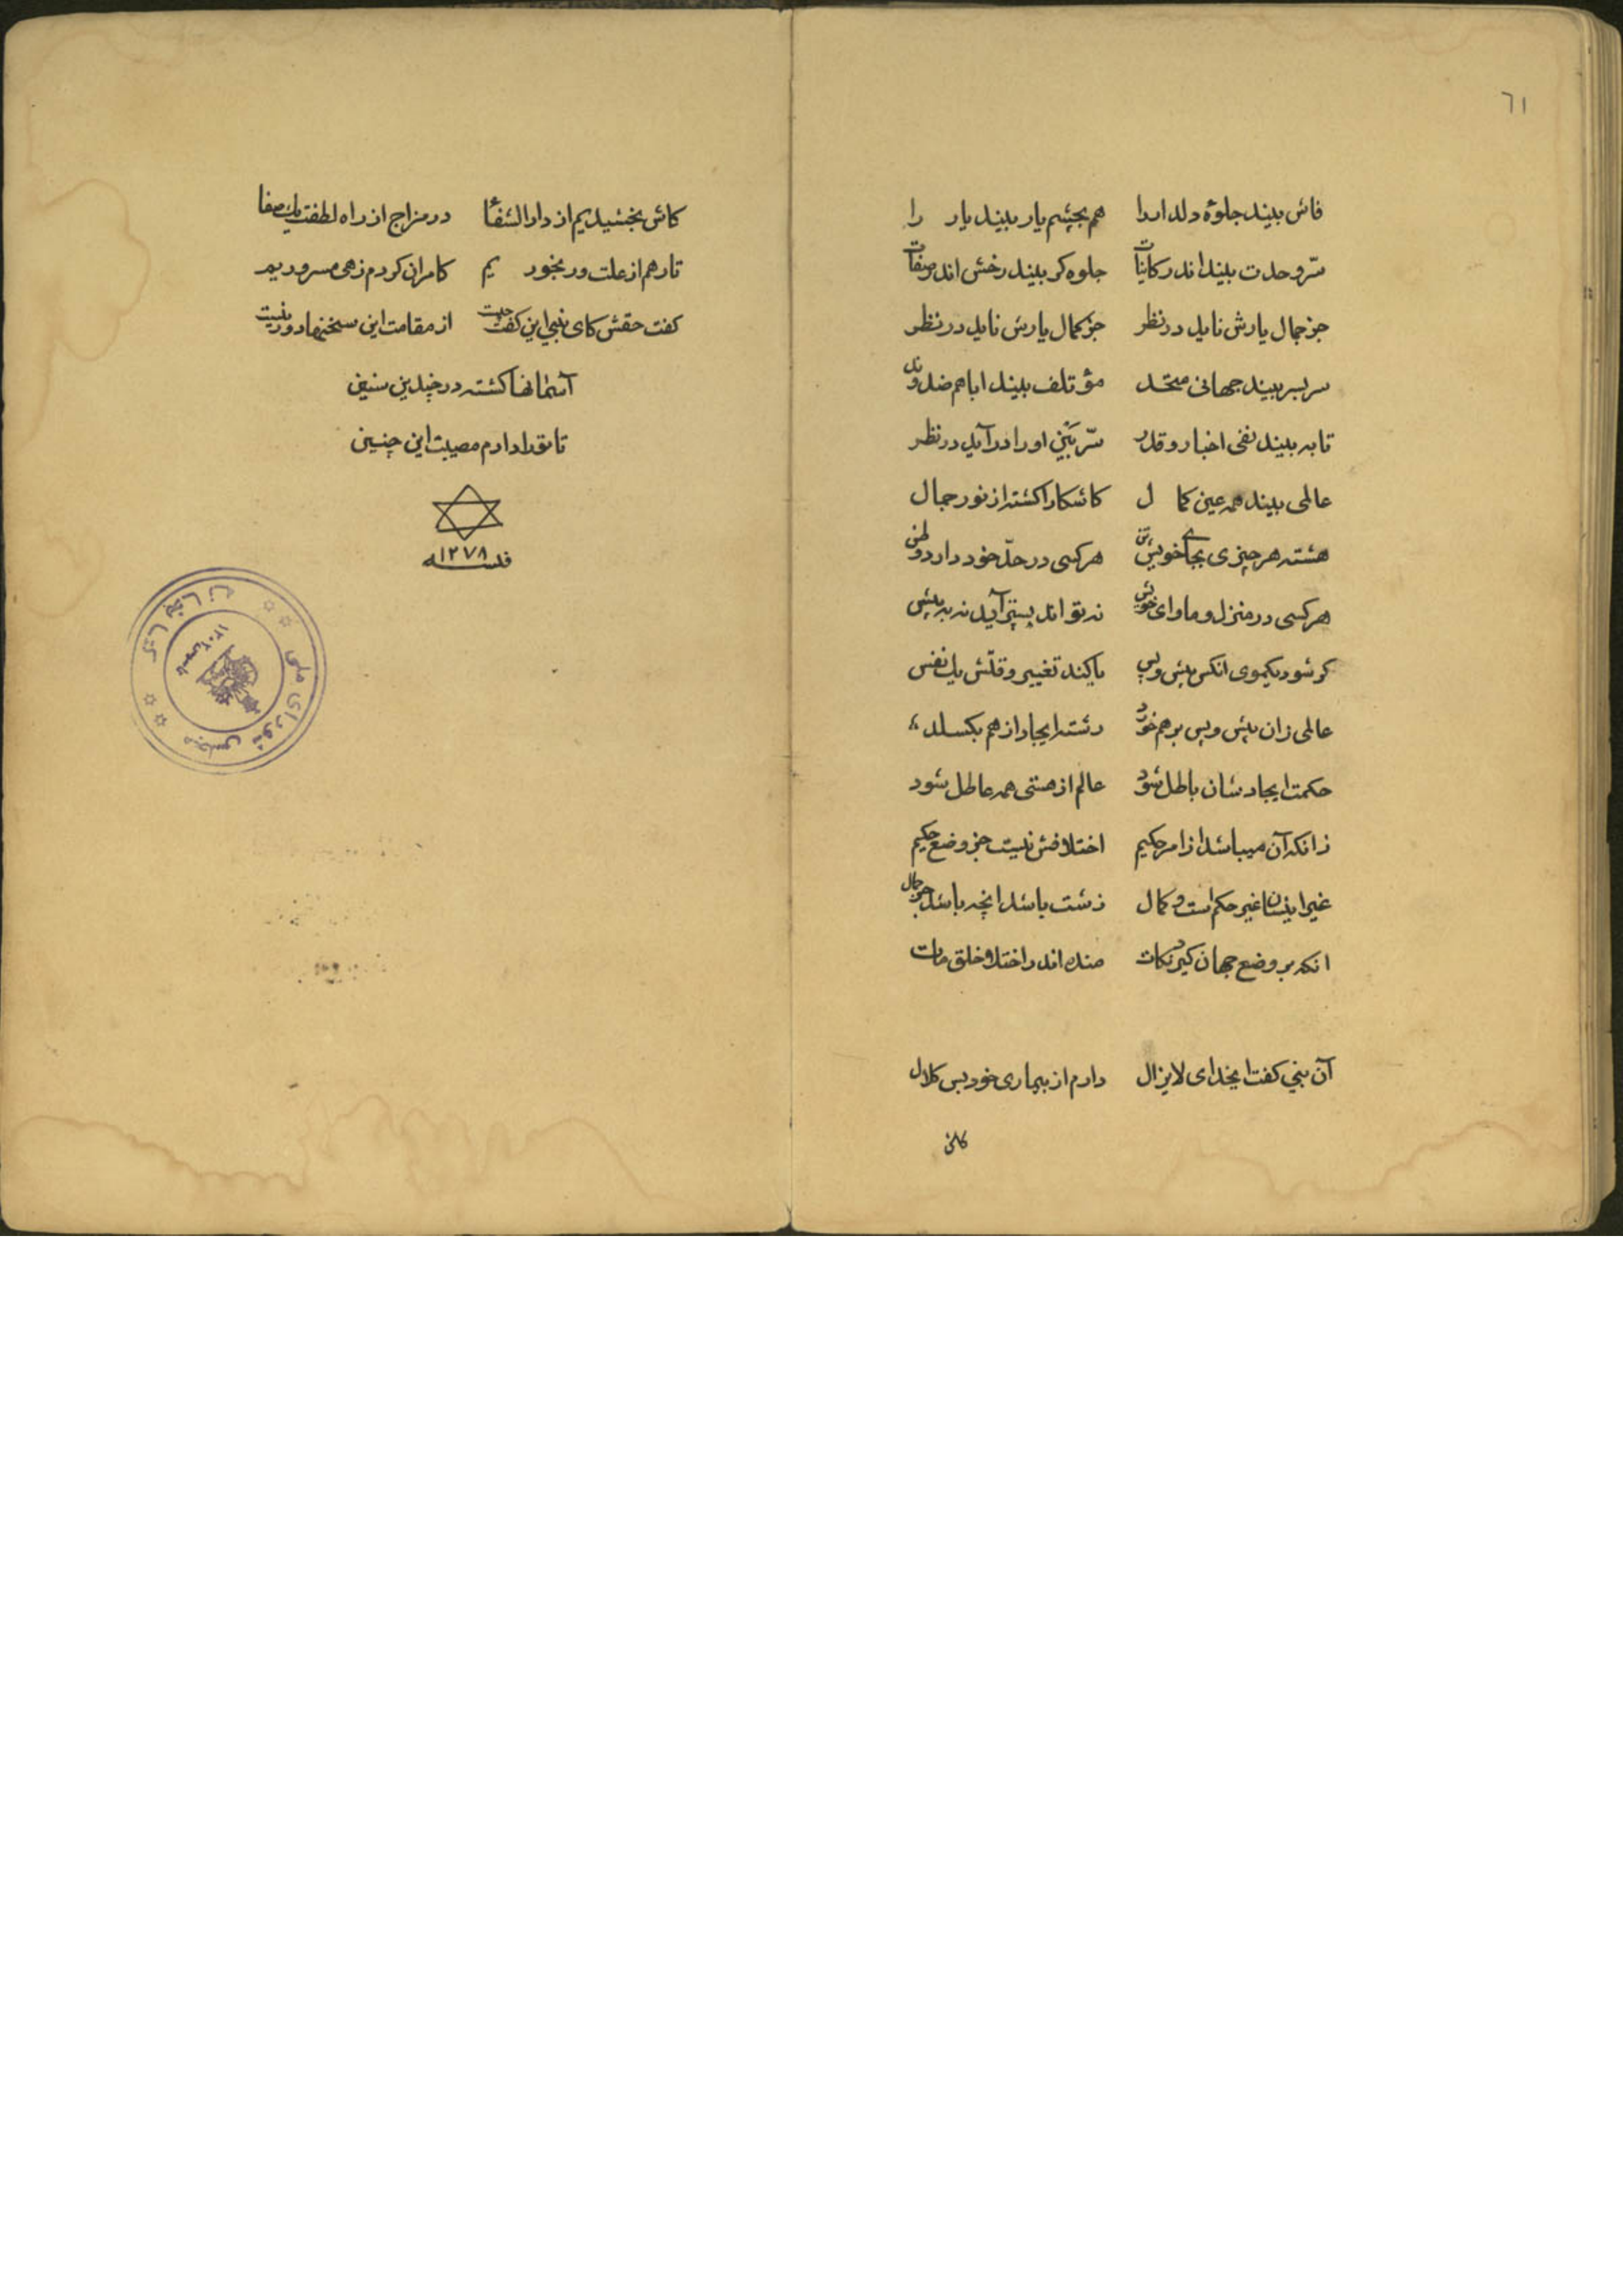 ٦١
فاش بیند جلوۀ دلدار را هم بچشم یار بیند یار را
سرّ وحدت بیند اندر کاینات جلوه کر بیند رخش اندر صفات
جز جمال یارش ناید در نظر جز کمال یارش ناید در نظر
سربسر بیند جهانی متحد مؤتلف بیند ابا هم ضد و ند
تا به بیند نفی اخبار و قدر سرّ بَین او را در آید در نظر
عالمی بیند همه عین کمال کاشکارا کشته از نور جمال
هشته هر چیزی بجای خویشتن هر کسی در حدّ خود دارد وطن
هر کسی در منزل و ماوای خویش نه تواند پستر آید نه به پیش
کر شود یکموی انکس پیش و پس یا کند تغییر وقتش یک نفس
عالمی زان پیش و پس بر هم خورد رشته ایجاد از هم بکسلد
حکمت ایجادشان باطل شود عالم از هستی همه عاطل شود
زانکه آن میباشد از امر حکیم اختلافش نیست جز وضع حکیم
غیر اینسان غیر حکم است و کمال زشت باشد انچه باشد جز جمال
انکه بر وضع جهان کیرد نکات مانده اندر اختلاف خلق مات
آن نبی کفت ایخدای لایزال دارم از بیماری خود بس کلال
کاش
کاش بخشیدیم از دار الشفا در مزاج از راه لطفت یک صفا
تا رهم از علت و رنجوریم کامران کردم زهی مسروریم
کفت حقش کای نبی این کفت چیست از مقامت این سخنها دور نیست
آسمانها کشته در چندین سنین
تا تو را دارم مصیبت این چنین
۱۲۷۸
کتابخانه
مجلس شورای ملی